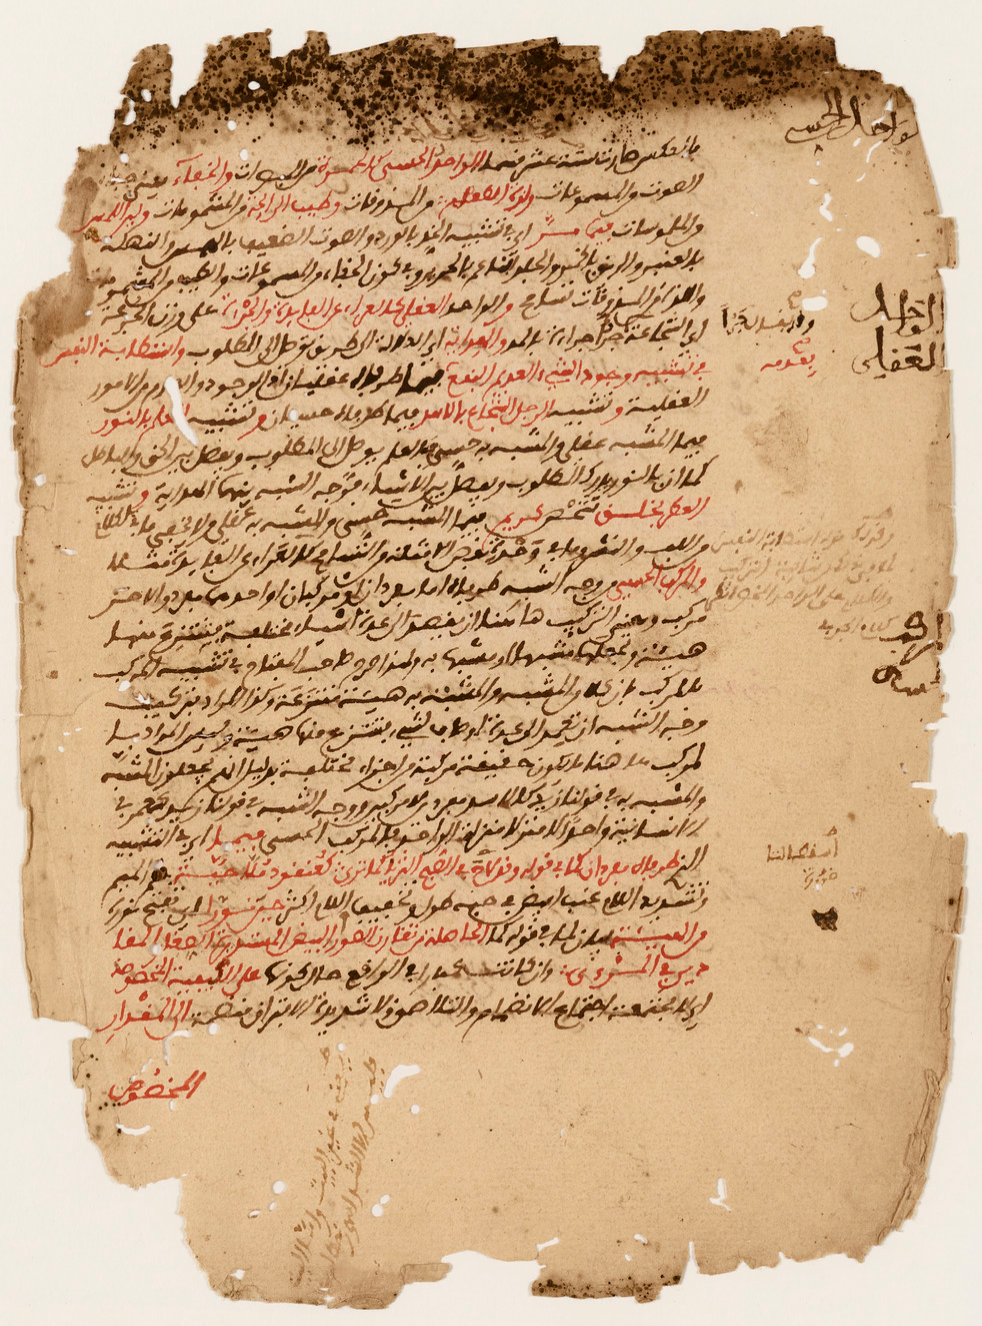 بالعكس صارت ستة عشر قسما الواحد الحسي كالحمرة من المبصرات والخفاء يعني خفاء
الصوت من المسموعات ولذة الطعم من المذوقات وطيب الرائحة من المشمومات ولين اللمس
من الملموسات فيما مرّ أي في تشبيه الخد بالورد والصوت الضعيف بالهمس والنكهة
بالعنبر والريق بالخمر والجلد الناعم بالحرير وفي كون الخفاء من المسموعات والطيب من المشمومات
واللذة من المذوقات تسامح والواحد العقلي كالعراء عن الفايدة والجرأة على وزن الجرعة
أي الشجاعة جراءة بالمد والهداية أي الدلالة إلى طريق يوصل إلى المطلوب واستطابة النفس
في تشبيه وجود الشيء العديم النفع فيما طرفاه عقليان إذ الوجود والعدم من الأمور
العقلية وتشبيه الرجل الشجاع بالأسد فيما طرفاه حسيان وتشبيه العلم بالنور
فيما المشبه عقلي والمشبه به حسي فبالعلم يوصل إلى المطلوب ويفصل بين الحق والباطل
كما أن بالنور يدرك المطلوب ويفصل بين الأشياء فوجه الشبه بينهما الهداية وتشبيه
العطر بخلق شخص كريم فيما المشبه حسي والمشبه به عقلي ولا يخفى ما في الكلام
من اللف والنشر وما في وحدة بعض الأمثلة من التسامح كالعراء عن الفايدة مثلا
والمركب الحسي من وجه الشبه طرفاه إما مفردان أو مركبان أو أحدهما مفرد والآخر
مركب ومعنى التركيب هاهنا أن يقصد إلى عدة أشياء مختلفة فينتزع منها
هيئة ويجعلها مشبها أو مشبها به ولهذا صرح صاحب المفتاح في تشبيه المركب
بالمركب بأن كلا من المشبه والمشبه به هيئة منتزعة وكذا المراد بتركيب
وجه الشبه أن تعمد إلى عدة أوصاف لشيء فتنتزع منها هيئة وليس المراد بالـ
مركب هاهنا ما يكون حقيقة مركبة من أجزاء مختلفة بدليل أنهم يجعلون المشبه
والمشبه به في قولنا زيد كالأسد مفردين لا مركبين ووجه الشبه في قولنا زيد كعمرو في
الإنسانية واحدا لا منزلا منزلة الواحد فالمركب الحسي فيما أي في التشبيه
الذي طرفاه مفردان كما في قوله وقد لاح في الصبح الثريا كما ترى كعنقود ملاحية بضم الميم
وتشديد اللام عنب أبيض في حبه طول وتخفيف اللام أكثر حين نورا أي تفتح نوره
من الهيئة بيان لما في قوله كما الحاصلة من تقارن الصور البيض المستديرة الصغار المقا
دير في المرءى وإن كانت كبارا في الواقع حال كونها على الكيفية المخصوصة
أي لا مجتمعة اجتماع الانضمام والتلاصق ولا شديدة الافتراق منضمة إلى المقدار
المخصوص
الواحد الحسي
الواحد
العقلي
بعدمه
المركب